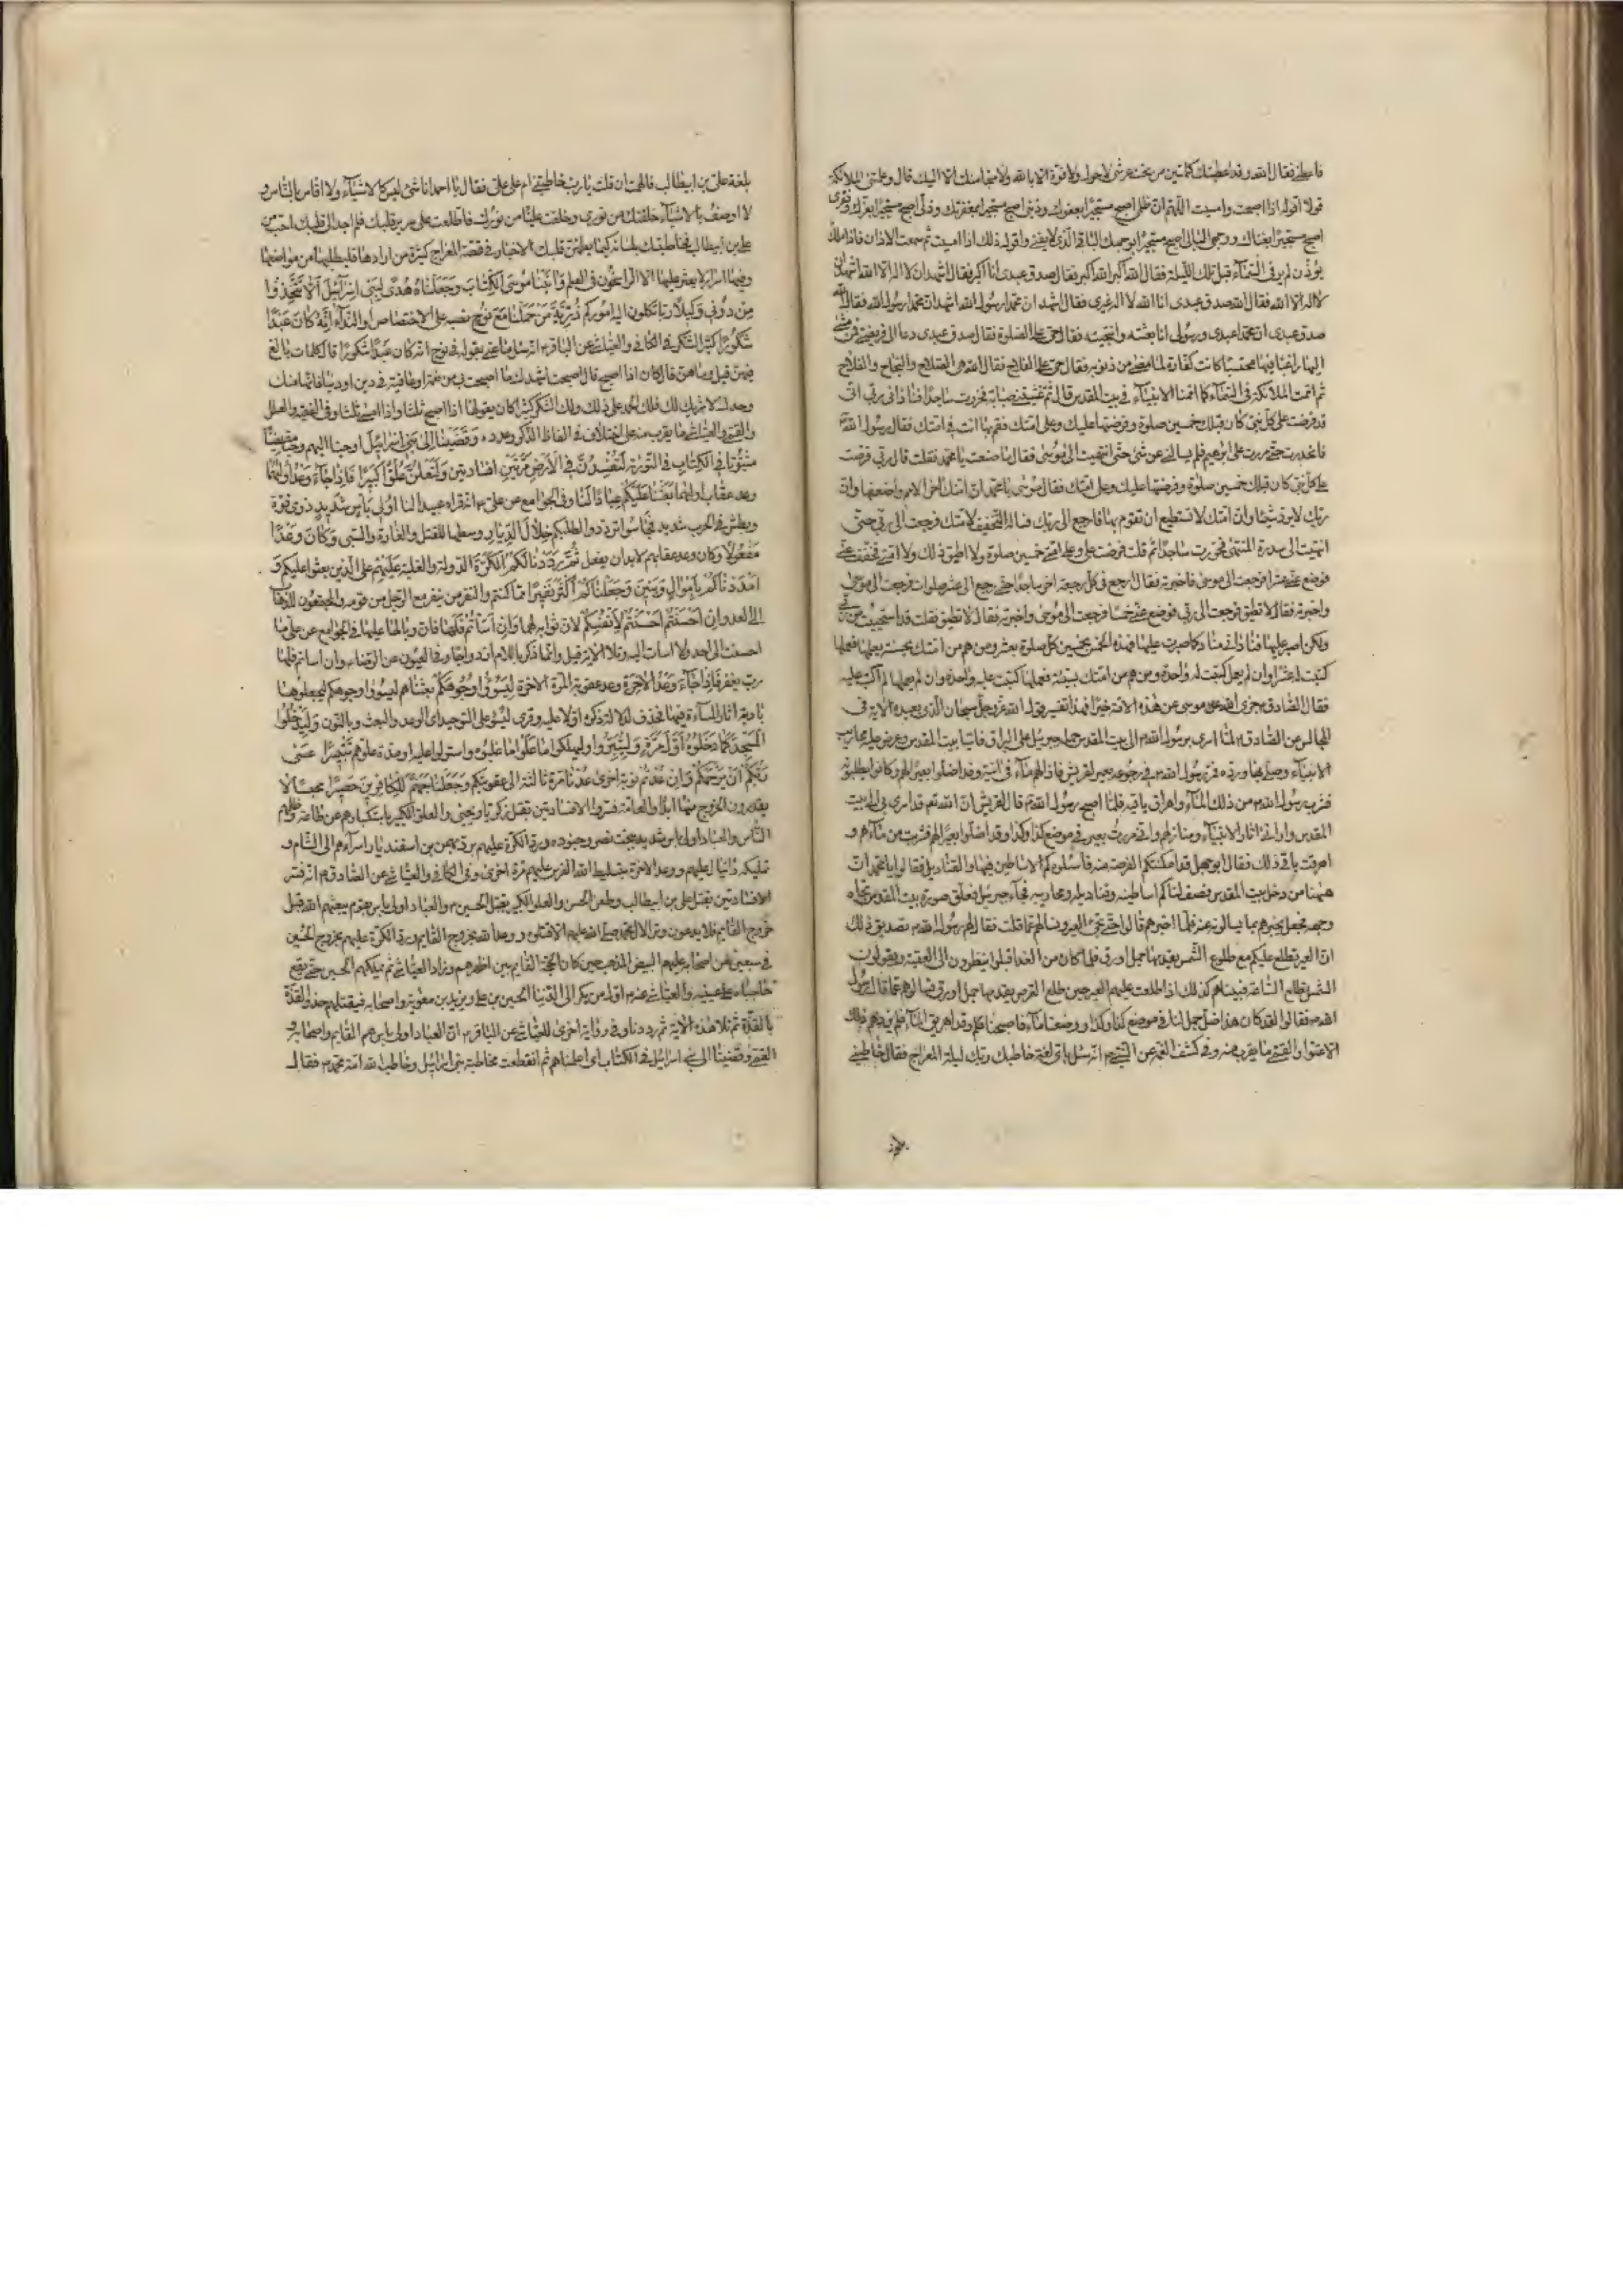 فاعطني فقال الله وقد اعطيتك كلمتين من تحت عرشي لا حول ولا قوة الا بالله ولا منجا منك الا اليك قال وعلمتني الملائكة
قولا اقوله اذا اصبحت وامسيت اللهم ان ظلمي اصبح مستجيرا بعفوك وذنبي اصبح مستجيرا بمغفرتك وذلي اصبح مستجيرا بعزك وفقري
اصبح مستجيرا بغناك ووجهي البالي اصبح مستجيرا بوجهك الباقي الذي لا يفنى واقول ذلك اذا امسيت ثم سمعت الاذان فاذا ملك
يؤذن لم ير في السماء قبل تلك الليلة فقال الله اكبر الله اكبر فقال صدق عبدي انا اكبر فقال اشهد ان لا اله الا الله اشهد ان
لا اله الا الله فقال الله صدق عبدي انا الله لا اله غيري فقال اشهد ان محمدا رسول الله اشهد ان محمدا رسول الله فقال الله
صدق عبدي ان محمدا عبدي ورسولي انا بعثته وانتجبته فقال حي على الصلوة فقال صدق عبدي دعا الى فريضتي فمن مشى
اليها راغبا فيها محتسبا كانت كفارة لما مضى من ذنوبه فقال حي على الفلاح فقال الله هي الصلاح والنجاح والفلاح
ثم اممت الملائكة في السماء كما اممت الانبياء في بيت المقدس قال ثم غشيتني ضبابة فخررت ساجدا فناداني ربي اني
قد فرضت على كل نبي كان قبلك خمسين صلوة وفرضتها عليك وعلى امتك فقم بها انت في امتك فقال رسول الله
فانحدرت حتى مررت على ابرهيم فلم يسالني عن شيء حتى انتهيت الى موسى فقال ما صنعت يا محمد فقلت قال ربي فرضت
على كل نبي كان قبلك خمسين صلوة وفرضتها عليك وعلى امتك فقال موسى يا محمد ان امتك اخر الامم واضعفها وان
ربك لا يزيده شيئا وان امتك لا تستطيع ان تقوم بها فارجع الى ربك فساله التخفيف لامتك فرجعت الى ربي حتى
انتهيت الى سدرة المنتهى فخررت ساجدا ثم قلت فرضت علي وعلى امتي خمسين صلوة ولا اطيق ذلك ولا امتي فخفف عني
فوضع عني عشرا فرجعت الى موسى فاخبرته فقال ارجع في كل رجعة اخر ساجدا حتى رجع الى عشر صلوات فرجعت الى موسى
واخبرته فقال لا تطيق فرجعت الى ربي فوضع عني خمسا فرجعت الى موسى واخبرته فقال لا تطيق فقلت قد استحييت من ربي
ولكن اصبر عليها فناداني مناد كما صبرت عليها فهذه الخمس بخمسين كل صلوة بعشر ومن هم من امتك بحسنة يعملها فعملها
كتبت له عشرا وان لم يعمل كتبت له واحدة ومن هم من امتك بسيئة فعملها كتبت عليه واحدة وان لم يعملها لم اكتب عليه
فقال الصادق جزى الله موسى عن هذه الامة خيرا فهذا تفسير قول الله عز وجل سبحان الذي بعبده الاية في
المجالس عن الصادق لما اسرى برسول الله الى بيت المقدس حمله جبرئيل على البراق فاتيا بيت المقدس وعرض عليه محاريب
الانبياء وصلى بها ورده فمر رسول الله في رجوعه بعير لقريش فاذا لهم ماء في انية وقد اضلوا بعيرا لهم وكانوا يطلبونه
فشرب رسول الله من ذلك الماء واهراق باقيه فلما اصبح رسول الله قال لقريش ان الله تعم قد اسرى بي الى بيت
المقدس واراني اثار الانبياء ومنازلهم واني مررت بعير في موضع كذا وكذا وقد اضلوا بعيرا لهم فشربت من ماءهم و
اهرقت باقي ذلك فقال ابو جهل قد امكنتكم الفرصة منه فاسئلوه كم الاساطين فيها والقناديل فقالوا يا محمد ان
ههنا من دخل بيت المقدس فصف لنا كم اساطينه وقناديله ومحاريبه فجاء جبرئيل فعلق صورة بيت المقدس تجاه
وجهه فجعل يخبرهم بما يسالونه عنه فلما اخبرهم قالوا حتى تجيء العير ونسالهم عما قلت فقال لهم رسول الله تصديق ذلك
ان العير تطلع عليكم مع طلوع الشمس يقدمها جمل اورق فلما كان من الغد اقبلوا ينظرون الى العقبة ويقولون
الشمس تطلع الساعة فبينما هم كذلك اذا طلعت عليهم العير حين طلع القرص يقدمها جمل اورق فسالوهم عما قال رسول
الله فقالوا لقد كان هذا ضل جمل لنا في موضع كذا وكذا ووضعنا ماء فاصبحنا وقد اهريق الماء فلم يزدهم ذلك
الا عتوا والقمي ما يقرب منه وفي كشف الغمة عن النبي انه سئل باي لغة خاطبك ربك ليلة المعراج فقال خاطبني
بلغة علي بن ابيطالب فالهمت ان قلت يا رب خاطبتني ام علي فقال يا احمد انا شيء ليس كالاشياء ولا اقاس بالناس و
لا اوصف بالاشياء خلقتك من نوري وخلقت عليا من نورك فاطلعت على سرير قلبك فلم اجد الى قلبك احب من
علي بن ابيطالب فخاطبتك بلسانه كيما يطمئن قلبك الاخبار في قصة المعراج كثيرة من ارادها فليطلبها من مواضعها
وفيها اسرار لا يعثر عليها الا الراسخون في العلم وَاٰتَيْنَا مُوسَى الْكِتَابَ وَجَعَلْنَاهُ هُدًى لِبَنِي اِسْرَآئِيلَ اَلَّا تَتَّخِذُوا
مِنْ دُونِي وَكِيلًا ربا تكلون اليه اموركم ذُرِّيَّةَ مَنْ حَمَلْنَا مَعَ نُوحٍ نصبه على الاختصاص او النداء اِنَّهُ كَانَ عَبْدًا
شَكُورًا كثير الشكر في الكافي والعياشي عن الباقر انه سئل ما عنى بقوله في نوح انه كان عبدا شكورا قال كلمات بالغ
فيهن قيل وما هن قال كان اذا اصبح قال اصبحت اشهدك ما اصبحت بي من نعمة او عافية في دين او دنيا فانها منك
وحدك لا شريك لك فلك الحمد على ذلك ولك الشكر كثيرا كان يقولها اذا اصبح ثلثا واذا امسى ثلثا وفي الفقيه والعلل
والقمي والعياشي ما يقرب منه على اختلاف في الفاظ الذكر وعدده وَقَضَيْنَا اِلٰى بَنِي اِسْرَائِيلَ اوحينا اليهم وحيا مقضيا
مبتوتا فِي الْكِتَابِ في التورية لَتُفْسِدُنَّ فِي الْاَرْضِ مَرَّتَيْنِ افسادتين وَلَتَعْلُنَّ عُلُوًّا كَبِيرًا فَاِذَا جَاءَ وَعْدُ اُولٰيهُمَا
وعد عقاب اوليهما بَعَثْنَا عَلَيْكُمْ عِبَادًا لَنَا وفي الجوامع عن علي انه قراه عبيدا لنا اُولِي بَأْسٍ شَدِيدٍ ذوي قوة
وبطش في الحرب شديد فَجَاسُوا ترددوا لطلبكم خِلَالَ الدِّيَارِ وسطها للقتل والغارة والسبي وَكَانَ وَعْدًا
مَفْعُولًا وكان وعد عقابهم لا بد ان يفعل ثُمَّ رَدَدْنَا لَكُمُ الْكَرَّةَ الدولة والغلبة عَلَيْهِمْ على الذين بعثوا عليكم وَ
اَمْدَدْنَاكُمْ بِاَمْوَالٍ وَبَنِينَ وَجَعَلْنَاكُمْ اَكْثَرَ نَفِيرًا مما كنتم والنفر من ينفر مع الرجل من قومه والمجتمعون للذهاب
الى العدو اِنْ اَحْسَنْتُمْ اَحْسَنْتُمْ لِاَنْفُسِكُمْ لان ثوابه لها وَاِنْ اَسَأْتُمْ فَلَهَا فان وبالها عليها في الجوامع عن علي ما
احسنت الى احد ولا اسات اليه وتلا الاية قيل وانما ذكر باللام ازدواجا وفي العيون عن الرضا وان اساتم فلها
رب يغفر فَاِذَا جَاءَ وَعْدُ الْاٰخِرَةِ وعد عقوبة المرة الاخرة لِيَسُوؤُا وُجُوهَكُمْ بعثناهم ليسوؤا وجوهكم ليجعلوها
بادية اثار المساءة فيها فحذف لدلالة ذكره اولا عليه وقرئ ليسوء على التوحيد اي الوعد والبعث وبالنون وَلِيَدْخُلُوا
الْمَسْجِدَ كَمَا دَخَلُوهُ اَوَّلَ مَرَّةٍ وَلِيُتَبِّرُوا وليهلكوا مَا عَلَوْا ما غلبوه واستولوا عليه او مدة علوهم تَتْبِيرًا عَسٰى
رَبُّكُمْ اَنْ يَرْحَمَكُمْ وَاِنْ عُدْتُمْ نوبة اخرى عُدْنَا مرة ثالثة الى عقوبتكم وَجَعَلْنَا جَهَنَّمَ لِلْكَافِرِينَ حَصِيرًا محبسا لا
يقدرون الخروج منها ابدا والعامة فسروا الافسادتين بقتل زكريا ويحيى والعلو الكبير باستكبارهم عن طاعة وظلمهم
الناس والعباد اولي باس شديد ببخت نصر وجنوده ورد الكرة عليهم برد بهمن بن اسفنديار اسراءهم الى الشام و
تمليكه دانيال عليهم ووعد الاخرة بتسليط الله الفرس عليهم مرة اخرى وفي الكافي والعياشي عن الصادق انه فسر
الافسادتين بقتل علي بن ابيطالب وطعن الحسن والعلو الكبير بقتل الحسين والعباد اولي باس بقوم يبعثهم الله قبل
خروج القايم فلا يدعون وترا لال محمد صلى الله عليهم الا قتلوه ووعد الله بخروج القايم ورد الكرة عليهم بخروج الحسين
في سبعين من اصحابه عليهم البيض المذهب حين كان الحجة القايم بين اظهرهم وزاد العياشي ثم يملكهم الحسين حتى يقع
حاجباه على عينيه والعياشي عنه اول من يكر الى الدنيا الحسين بن علي ويزيد بن معوية واصحابه فيقتلهم حذو القذة
بالقذة ثم تلا هذه الاية ثم رددنا وفي رواية اخرى للعياشي عن الباقر ان العباد اولي باس هم القايم واصحابه و
القمي وقضينا الى بني اسرائيل في الكتاب اي اعلمناهم ثم انقطعت مخاطبة بني اسرائيل وخاطب الله امة محمد فقال